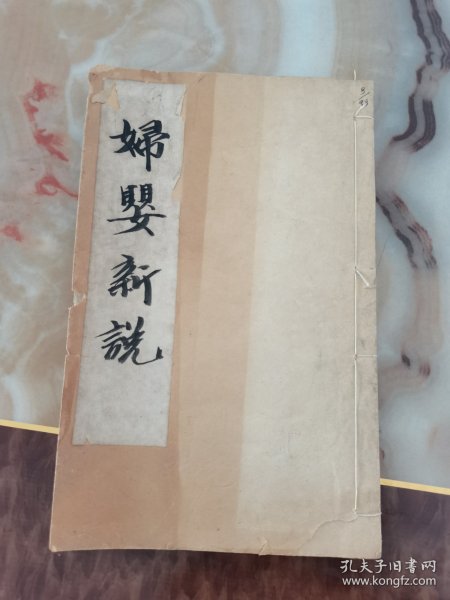 婦嬰新說
8/93
孔夫子旧书网
www.kongfz.com